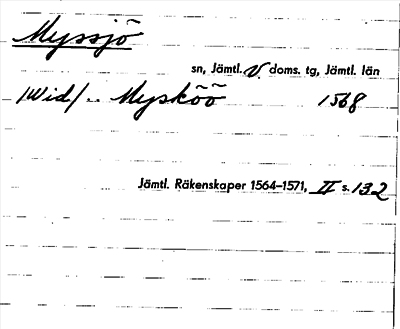 Myssjö
sn, Jämtl. V. doms. tg, Jämtl. län
/Wid/ .. Myskõõ 1568
Jämtl. Räkenskaper 1564–1571, II s. 132